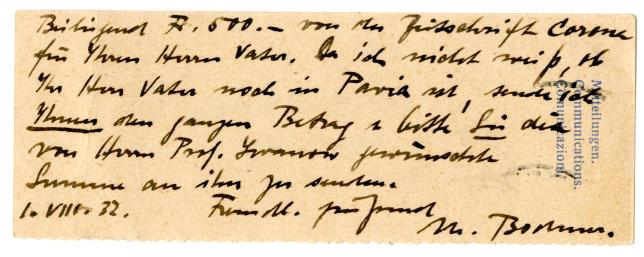 Beiliegend Fr. 500.— von der Zeitschrift Corona
für Ihren Herrn Vater. Da ich nicht weiß, ob
Ihr Herr Vater noch in Pavia ist, sende ich
Ihnen den ganzen Betrag u bitte Sie die
von Herrn Prof. Iwanow gewünschte
Summe an ihn zu senden.
1. VIII. 32. Freundl. grüssend
M. Bodmer.
Mitteilungen.
Communications.
Comunicazioni.